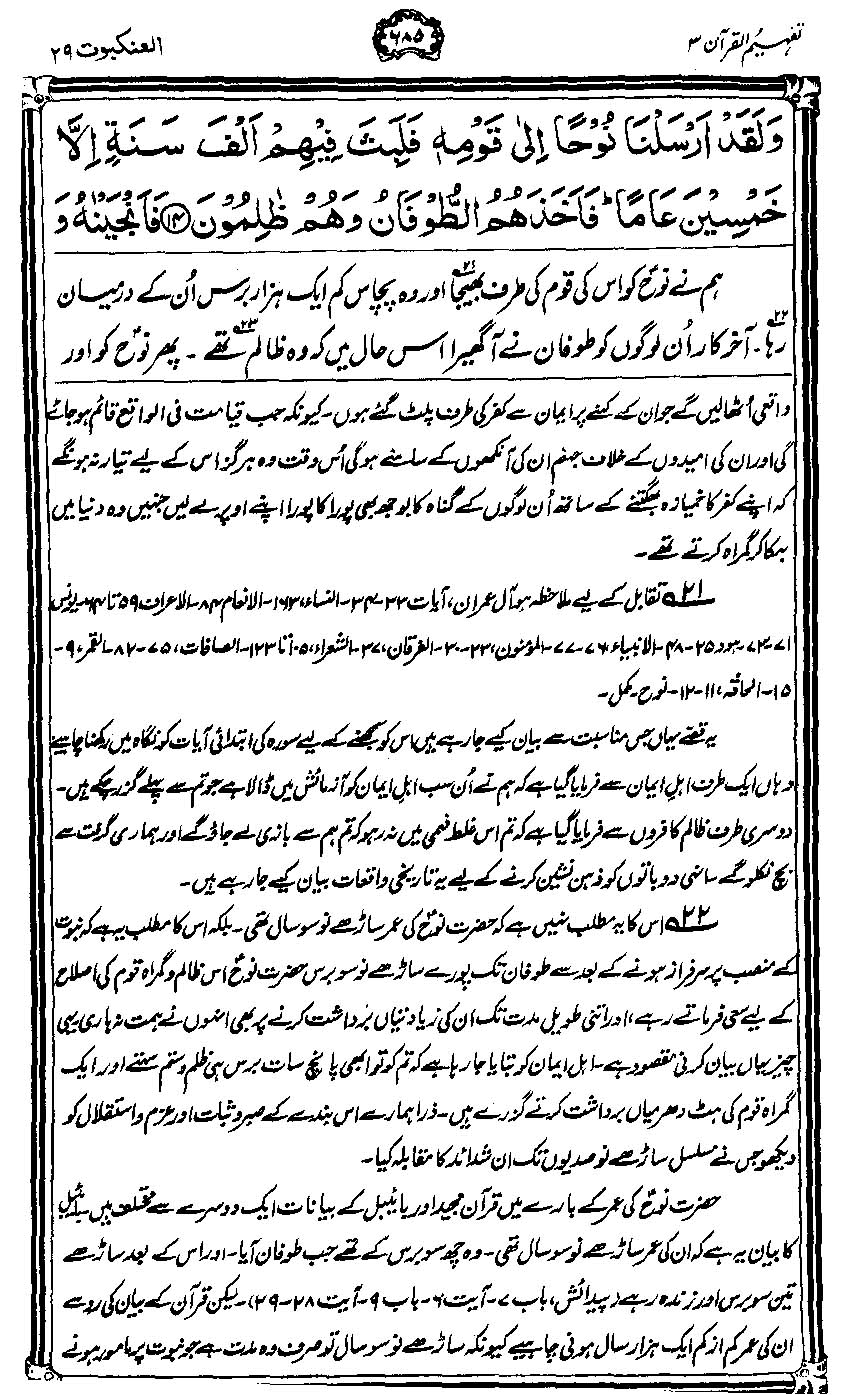 تفہیم القرآن ۳
۶۸۵
العنکبوت ۲۹
وَلَقَدْ اَرْسَلْنَا نُوْحًا اِلٰى قَوْمِهٖ فَلَبِثَ فِيْهِمْ اَلْفَ سَنَةٍ اِلَّا
خَمْسِيْنَ عَامًا ؕ فَاَخَذَهُمُ الطُّوْفَانُ وَهُمْ ظٰلِمُوْنَ ⑭ فَاَنْجَيْنٰهُ وَ
ہم نے نوحؑ کو اس کی قوم کی طرف بھیجا۲۱ اور وہ پچاس کم ایک ہزار برس اُن کے درمیان
رہا۲۲۔ آخر کار اُن لوگوں کو طوفان نے آ گھیرا اس حال میں کہ وہ ظالم تھے۲۳۔ پھر نوحؑ کو اور
واقعی اُٹھالیں گے جو ان کے کہنے پر ایمان سے کفر کی طرف پلٹ گئے ہوں۔ کیونکہ جب قیامت فی الواقع قائم ہو جائے
گی اور ان کی امیدوں کے خلاف جہنم ان کی آنکھوں کے سامنے ہوگی اُس وقت وہ ہرگز اس کے لیے تیار نہ ہونگے
کہ اپنے کفر کا خمیازہ بھگتنے کے ساتھ اُن لوگوں کے گناہ کا بوجھ بھی پورا کا پورا اپنے اوپر لے لیں جنہیں وہ دنیا میں
بہکا کر گمراہ کرتے تھے۔
۲۱ تقابل کے لیے ملاحظہ ہو آل عمران، آیات ۳۳-۳۴-النساء، ۱۶۳-الانعام ۸۴-الاعراف ۵۹ تا ۶۴-یونس
۷۱-۷۳-ہود ۲۵-۴۸-الانبیاء، ۷۶-۷۷-المؤمنون، ۲۳-۳۰-الفرقان، ۳۷-الشعراء، ۱۰۵ تا ۱۲۳-الصافات، ۷۵-۸۲-القمر، ۹-
۱۵-الحاقہ، ۱۱-۱۲-نوح-مکمل-
یہ قصے یہاں جس مناسبت سے بیان کیے جا رہے ہیں اس کو سمجھنے کے لیے سورہ کی ابتدائی آیات کو نگاہ میں رکھنا چاہیے
وہاں ایک طرف اہلِ ایمان سے فرمایا گیا ہے کہ ہم نے اُن سب اہلِ ایمان کو آزمائش میں ڈالا ہے جو تم سے پہلے گزر چکے ہیں۔
دوسری طرف ظالم کافروں سے فرمایا گیا ہے کہ تم اس غلط فہمی میں نہ رہو کہ تم ہم سے بازی لے جاؤ گے اور ہماری گرفت سے
بچ نکلو گے۔ انہی دو باتوں کو ذہن نشین کرنے کے لیے یہ تاریخی واقعات بیان کیے جا رہے ہیں۔
۲۲ اس کا یہ مطلب نہیں ہے کہ حضرت نوحؑ کی عمر ساڑھے نو سو سال تھی۔ بلکہ اس کا مطلب یہ ہے کہ نبوت
کے منصب پر سرفراز ہونے کے بعد سے طوفان تک پورے ساڑھے نو سو برس حضرت نوحؑ اس ظالم و گمراہ قوم کی اصلاح
کے لیے سعی فرماتے رہے، اور اتنی طویل مدت تک ان کی زیادتیاں برداشت کرنے پر بھی انہوں نے ہمت نہ ہاری یہی
چیز یہاں بیان کرنی مقصود ہے۔ اہل ایمان کو بتایا جا رہا ہے کہ تم کو تو ابھی پانچ سات برس ہی ظلم و ستم سہتے اور ایک
گمراہ قوم کی ہٹ دھرمیاں برداشت کرتے گزرے ہیں۔ ذرا ہمارے اس بندے کے صبر و ثبات اور عزم و استقلال کو
دیکھو جس نے مسلسل ساڑھے نو صدیوں تک ان شدائد کا مقابلہ کیا۔
حضرت نوحؑ کی عمر کے بارے میں قرآن مجید اور بائیبل کے بیانات ایک دوسرے سے مختلف ہیں بائیبل
کا بیان یہ ہے کہ ان کی عمر ساڑھے نو سو سال تھی۔ وہ چھ سو برس کے تھے جب طوفان آیا۔ اور اس کے بعد ساڑھے
تین سو برس اور زندہ رہے (پیدائش، باب ۷۔ آیت ۶۔ باب ۹۔ آیت ۲۸-۲۹)۔ لیکن قرآن کے بیان کی رو سے
ان کی عمر کم از کم ایک ہزار سال ہونی چاہیے کیونکہ ساڑھے نو سو سال تو صرف وہ مدت ہے جو نبوت پر مامور ہونے